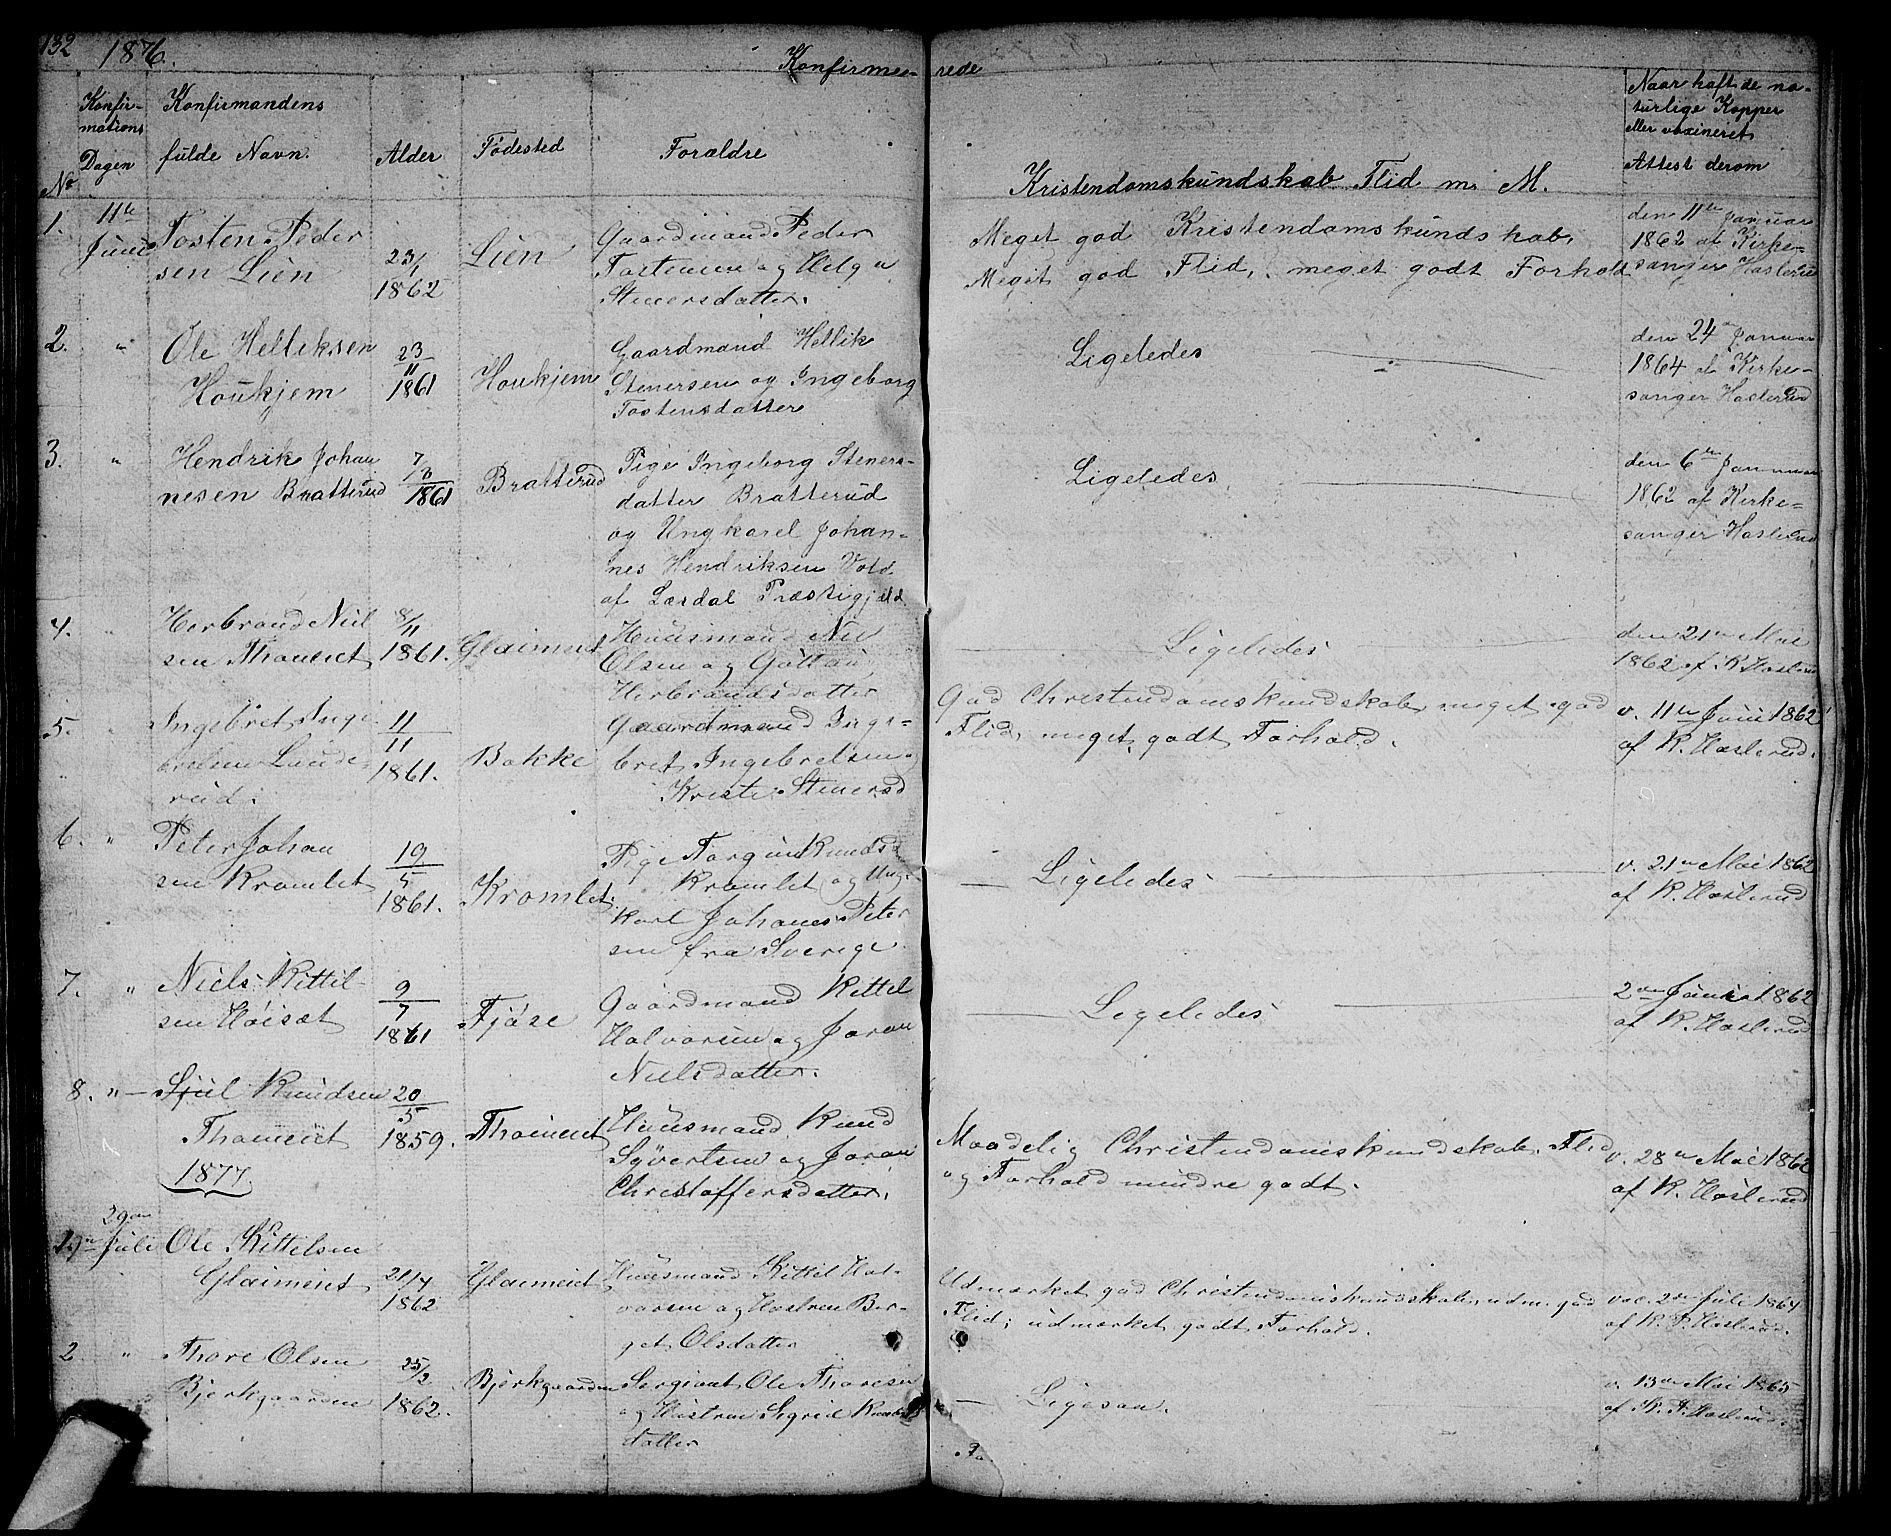 132 1876. Konfirme- rede
Konfir-
mations
Dagen
No
Konfirmandens
fulde Navn.
Alder
Fødested
Forældre
Kristendomskundskab Flid m. M.
Naar haft de na-
turlige Kopper
eller vaxineret
Attest derom
1. 11te
Juni
Tosten Peder
sen Lien
23/1
1862
Lien
Gaardmand Peder
Tostensen og Helga
Stenersdatter.
Meget god Kristendomskundskab,
Meget god Flid, meget godt Forhold
den 11te Januar
1862 af Kirke-
sanger Haslerud
2. "
Ole Helliksen
Houkjem
23/11
1861
Houkjem
Gaardmand Hellik
Stenersen og Ingeborg
Tostensdatter
Ligeledes
den 24de Januar
1864 af Kirke-
sanger Haslerud
3. "
Hendrik Johan
nesen Bratterud
7/3
1861
Bratterud
Pige Ingeborg Steners-
datter Bratterud
og Ungkarel Johan-
nes Hendriksen Vold
af Lærdal Præstigjæld.
Ligeledes
den 6te Januar
1862 af Kirke-
sanger Haslerud
4. "
Herbrand Niel
sen Thoneiet
8/11
1861.
Glaimeiet
Huusmand Niel
Olsen og
Herbrandsdatter
Ligeledes
den 21de Mai
1862 af K. Haslerud
5. "
Ingebret Inge
bretsen Lunde-
rud.
11/11
1861.
Bakke
Gaardmand Inge-
bret Ingebretsen og
Kristi Stenersd
God Christendomskundskab, meget god
Flid, meget godt Forhold.
v. 11te Juni 1862
af K. Haslerud.
6. "
Peter Johan
sen Kromlet
19/5
1861.
Kromlet.
Pige Torgun Knudsd
Kromlet og Ung-
karl Johanes Peter
sen fra Sverige
Ligeledes
v. 21de Mai 1862
af K. Haslerud
7. "
Niels Kittil-
sen Høisæt
9/7
1861
Fjøse
Gaardmand Kittel
Halvorsen og Joran
Nielsdatter.
Ligeledes
2den Juni 1862
af K. Haslerud
8. "
Sjul Knudsen
Thoneiet
20/5
1859.
Thoneiet
Huusmand Knud
Syvertsen og Joran
Christoffersdatter.
Maadelig Christendomskundskab, Flid
og Forhold mindre godt.
v. 28de Mai 1862
af K. Haslerud
1877
1. 29de
Juli
Ole Kittelsen
Glaimeiet
21/4
1862
Glaimeiet
Huusmand Kittil Hal-
vorsen og Hustren Bir-
get Olsdatter
Udmærket god Christendomskundskab, udm. god
Flid, udmærket godt Forhold.
vac. 2den Juli 1864
af K. P. Haslerud.
2 "
Thore Olsen
Bjerkgaarden
25/2
1862.
Bjerkgaarden
Sergiant Ole Thoresen
og Hustren Sigrid Knuds
datter
Ligesaa.
v. 13de Mai 1865
af K. P. Haslerud.